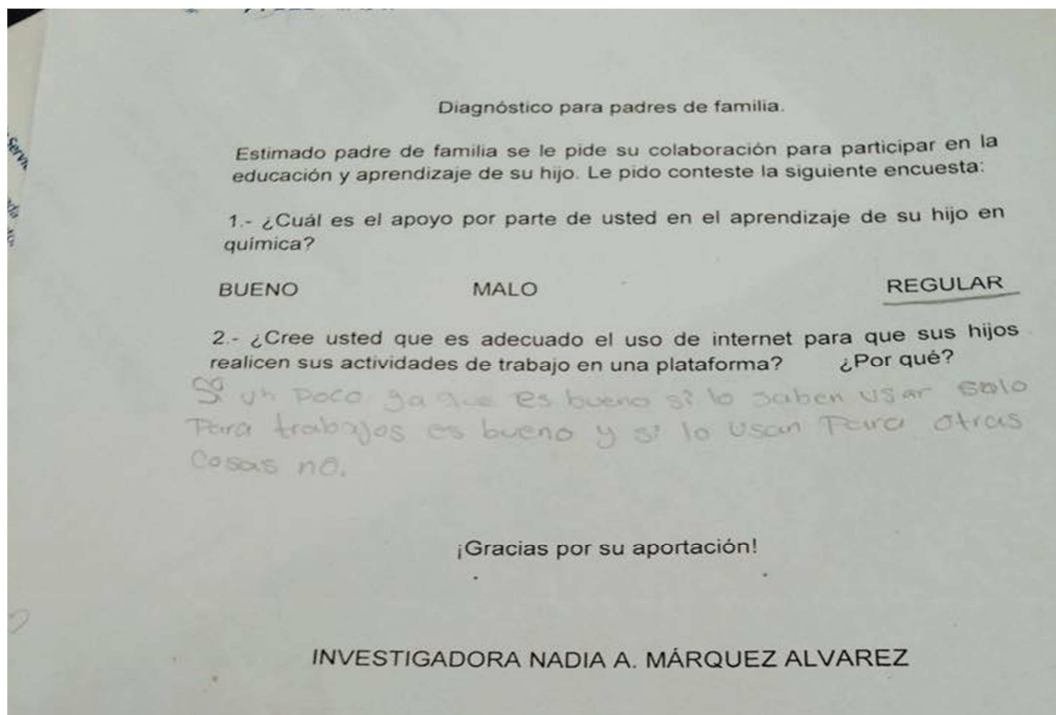 Diagnóstico para padres de familia.
Estimado padre de familia se le pide su colaboración para participar en la
educación y aprendizaje de su hijo. Le pido conteste la siguiente encuesta:
1.- ¿Cuál es el apoyo por parte de usted en el aprendizaje de su hijo en
química?
BUENO MALO REGULAR
2.- ¿Cree usted que es adecuado el uso de internet para que sus hijos
realicen sus actividades de trabajo en una plataforma? ¿Por qué?
Sí un poco ya que es bueno si lo saben usar solo
Para trabajos es bueno y si lo usan Para otras
Cosas no.
¡Gracias por su aportación!
INVESTIGADORA NADIA A. MÁRQUEZ ALVAREZ